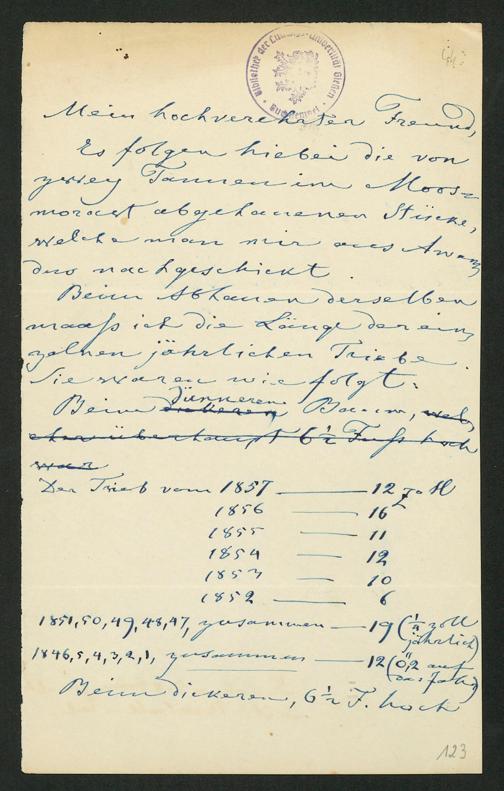 Bibliothek der Ludwigs-Universität Giessen
Mein hochverehrter Freund,
Es folgen hiebei die von
zwey Tannen im Moos=
morast abgehauenen Stücke,
welche man mir aus
nachgeschickt.
Beim Abhauen derselben
maaß ich die Länge der ein
zelnen jährlichen Triebe.
Sie waren wie folgt:
dünneren
Beim dickeren Baum, wel
cher überhaupt 6 1/2 Fuß hoch
war
Der Trieb vom 1857 — 12 Zoll
1856 — 16
1855 — 11
1854 — 12
1853 — 10
1852 — 6
1851, 50, 49, 48, 47, zusammen — 19 (zoll
jährlich)
1846, 5, 4, 3, 2, 1, zusammen — 12 (0,2 auf
das Jahr)
Beim dickeren, 6 1/2 F. hoch
123